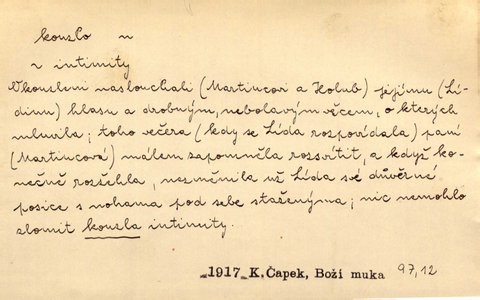 kouzlo n
~ intimity
Okouzleni naslouchali (Martincovi a Holub) jejímu (Lí-
dinu) hlasu a drobným, nebolavým věcem, o kterých
mluvila; toho večera (kdy se Lída rozpovídala) paní
(Martincová) málem zapomněla rozsvítit, a když ko-
nečně rozžehla, nezměnila už Lída své důvěrné
posice s nohama pod sebe staženýma; nic nemohlo
zlomit kouzla intimity.
1917 K. Čapek, Boží muka 97,12